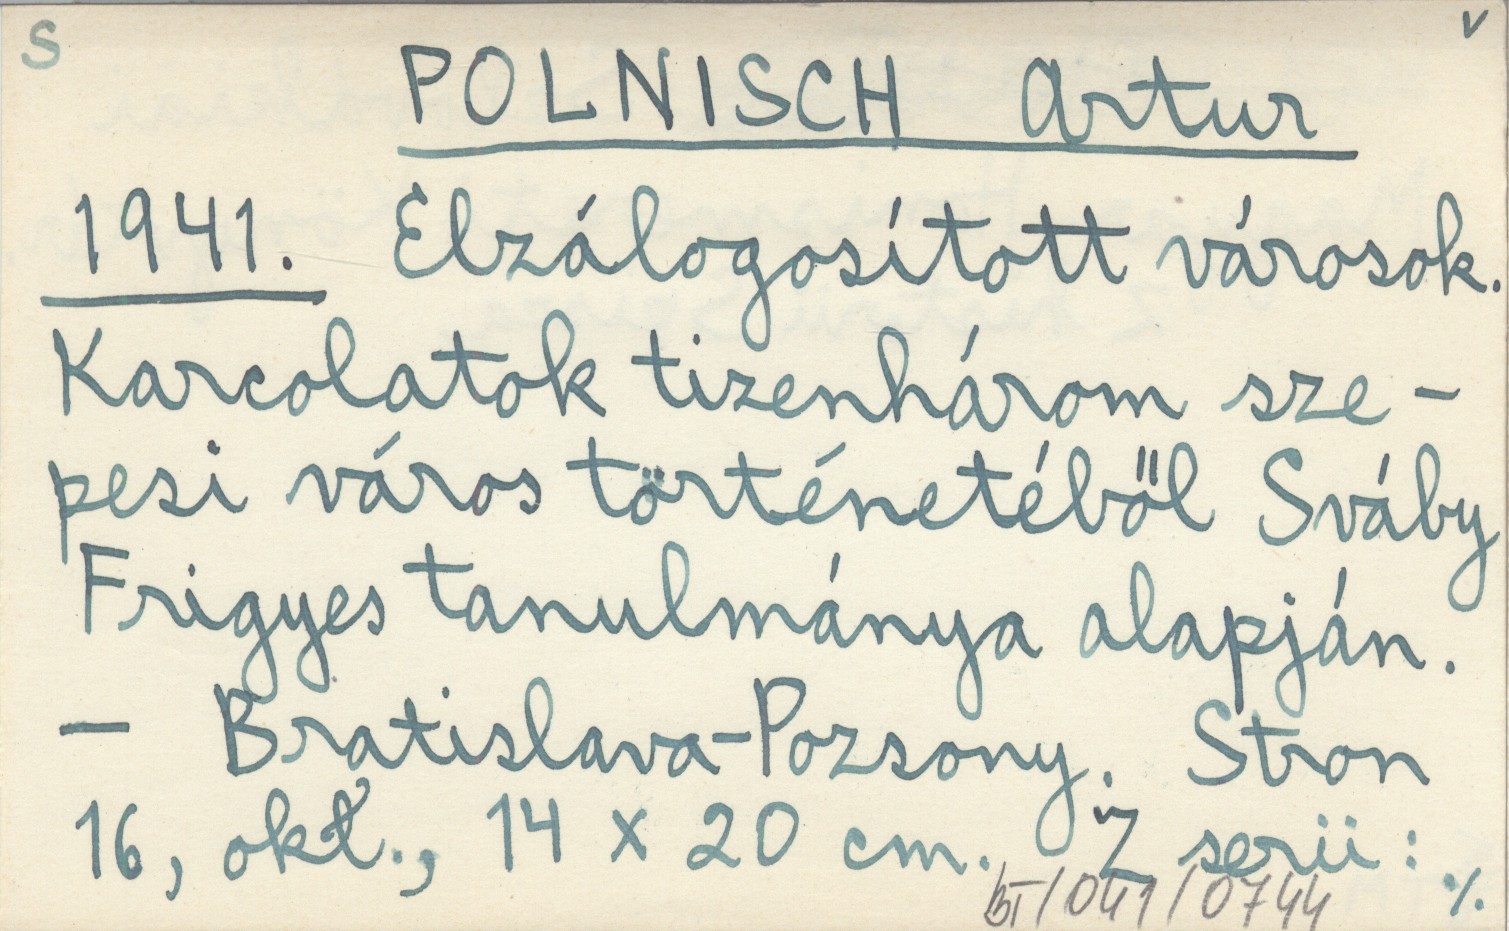 S
v
POLNISCH Artur
1941. Elzálogosított városok.
Karcolatok tizenhárom sze-
pesi város történetéből Sváby
Frigyes tanulmánya alapján.
— Bratislava-Pozsony. Stron
16, okł., 14 x 20 cm. Z serii:
BT/041/0744
./.